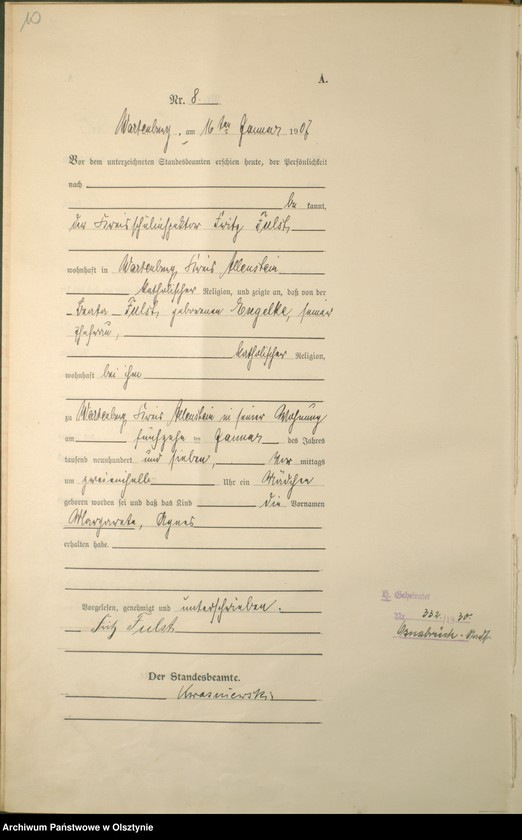 10
A.
Nr. 8.
Wartenburg, am 16 ten Januar 1907
Vor dem unterzeichneten Standesbeamten erschien heute, der Persönlichkeit
nach
be kannt,
der Kreisschulinspektor Fritz Fulst
wohnhaft in Wartenburg, Kreis Allenstein
katholischer Religion, und zeigte an, daß von der
Beata Fulst, geborenen Engelke, seiner
Ehefrau,
katholischer Religion,
wohnhaft bei ihm
zu Wartenburg, Kreis Allenstein in seiner Wohnung
am fünfzehn ten Januar des Jahres
tausend neunhundert und sieben, Vor mittags
um zweieinhalb Uhr ein Mädchen
geboren worden sei und daß das Kind die Vornamen
Margarete, Agnes
erhalten habe.
Vorgelesen, genehmigt und unterschrieben.
Fritz Fulst
H. Geheiratet
Nr. 332 /19 30.
Osnabrück-Stadt
Der Standesbeamte.
Krasniewski
Archiwum Państwowe w Olsztynie